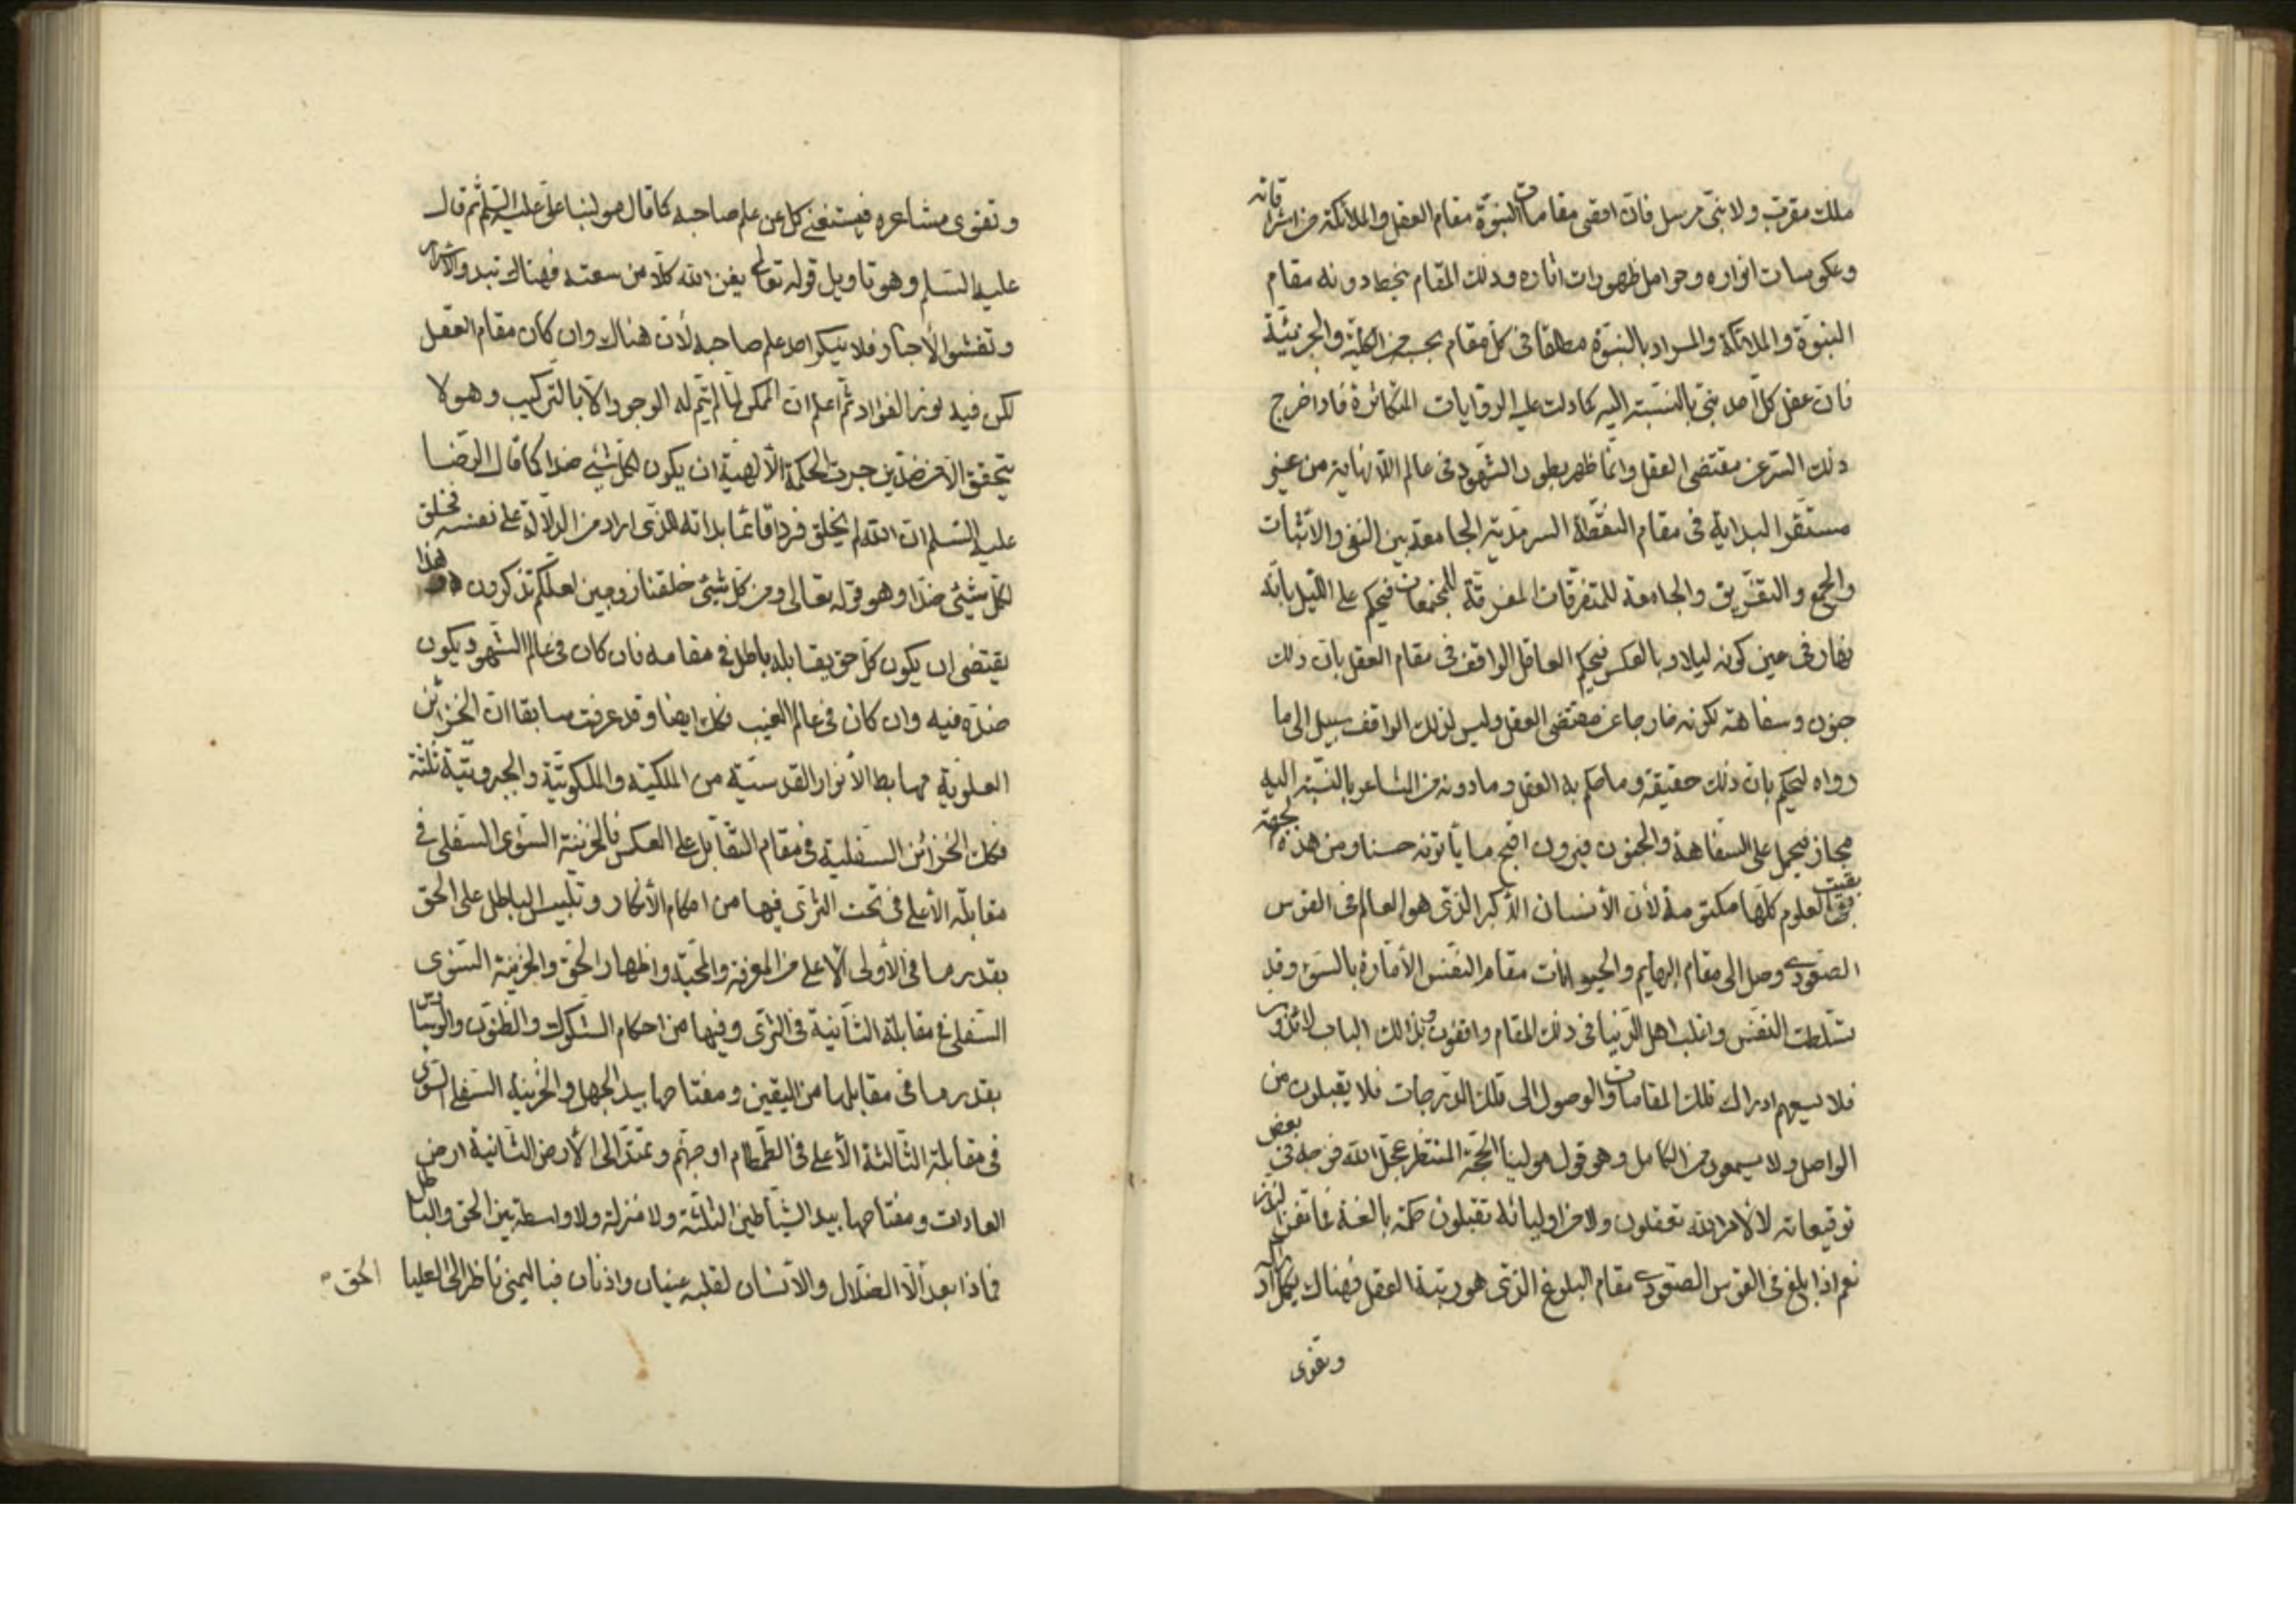 ملك مقرب ولا نبى مرسل فان اقصى مقامات النبوة مقام العقل والملائكة من اشراقاته
وعكوسات انواره وحوامل ظهورات اثاره وذلك المقام ينحط دونه مقام
النبوة والملائكة والمراد بالنبوة مطلقا فى كل مقام بحسبه من الكلية والجزئية
فان عقل كل احد نبى بالنسبة اليه كما دلت عليه الروايات المتكاثرة فاذا خرج
ذلك السر عن مقتضى العقل وانما ظهر بطور الشهود فى عالم اللانهاية من عين
مستقر البداية فى مقام النقطة السرمدية الجامعة بين النفى والاثبات
والجمع والتفريق والجامعة للمتفرقات المفرقة للمجتمعات فيحكم على الليل بانه
نهار فى عين كونه ليلا وبالعكس فيحكم العاقل الواقف فى مقام العقل بان ذلك
جنون وسفاهة لكونه خارجا عن مقتضى العقل وليس لذلك الواقف سبيل الى ما
وراه ليحكم بان ذلك حقيقة وما حكم به العقل وما دونه من المشاعر بالنسبة اليه
مجاز فيحمل على السفاهة والجنون فيرون اقبح ما يأتونه حسنا ومن هذه الجهة
بقيت العلوم كلها مكتومة لأن الأنسان الأكبر الذى هو العالم فى القوس
الصعودى وصل الى مقام البهايم والحيوانات مقام النفس الأمارة بالسوء وقد
تسلطت النفس واغلب اهل الدنيا فى ذلك المقام واقفون وبذلك الباب لائذون
فلا يسعهم ادراك تلك المقامات والوصول الى تلك الدرجات فلا يقبلون من
الواصل ولا يسمعون من الكامل وهو قول مولينا الحجة المنتظر عجل الله فرجه فى بعض
توقيعاته لا لأمر الله تعقلون ولا من اوليائه تقبلون حكمة بالغة فما تغن النذر
نعم اذا بلغ فى القوس الصعودى مقام البلوغ الذى هو رتبة العقل فهناك يكمل ادراكه
وتقوى
وتقوى مشاعره فيستغنى كل عن علم صاحبه كما قال مولينا على عليه السلم ثم قال
عليه السلم وهو تاويل قوله تعالى يغن الله كلا من سعته فهناك تبدو الاسرار
وتفشو الأخبار فلا ينكر احد علم صاحبه لأن هناك وان كان مقام العقل
لكن فيه نور الفؤاد ثم اعلم ان الممكن لما لم يتم له الوجود الا بالتركيب وهو لا
يتحقق الا من ضدين جرت الحكمة الألهية ان يكون لكل شيء ضدا كما قال الرضا
عليه السلم ان الله لم يخلق فردا قائما بذاته للذى اراد من الدلالة على نفسه فخلق
لكل شيئ ضدا وهو قوله تعالى ومن كل شيئ خلقنا زوجين لعلكم تذكرون هذا
يقتضى ان يكون كل حق يقابله باطل فى مقامه فان كان فى عالم الشهود يكون
ضده فيه وان كان فى عالم الغيب فكك ايضا وقد عرفت سابقا ان الخزائن
العلوية مهابط الأنوار القدسية من الملكية والملكوتية والجبروتية ثلثة
فكك الخزائن السفلية فى مقام التقابل على العكس فالخزينة السؤى السفلى فى
مقابلة الأعلى فى تحت الثرى فيها من احكام الأنكار وتلبيس الباطل على الحق
بقدر ما فى الأولى الأعلى من المعرفة والمحبة واظهار الحق والخزينة السؤى
السفلى فى مقابلة الثانية فى الثرى وفيها من احكام الشكوك والظنون والريبا
بقدر ما فى مقابلها من اليقين ومفتاحها بيد الجهل والخزينة السفلى السؤى
فى مقابلة الثالثة الأعلى فى الطمطام او جهنم وتمتد الى الأرض الثانية ارض
العادات ومفتاحها بيد الشياطين الثلثة ولا منزلة ولا واسطة بين الحق والباطل
فماذا بعد الحق الا الضلال والأنسان لقلبه عينان واذنان فباليمنى ناظر الى العليا